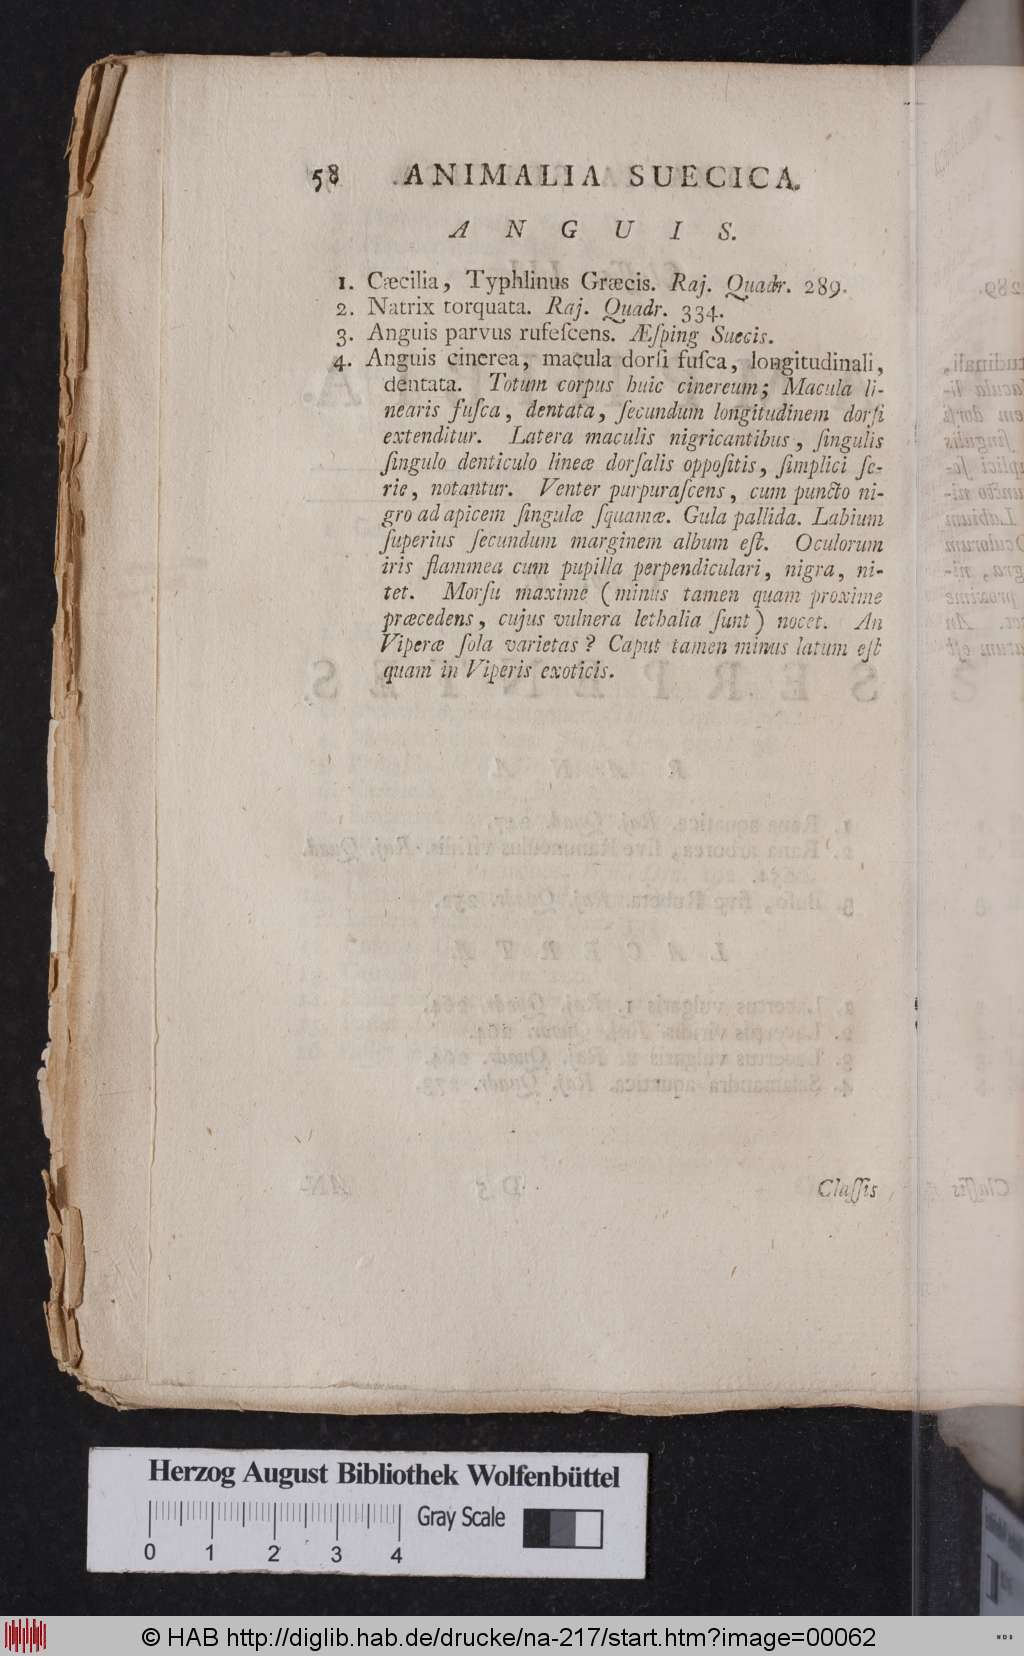 58 ANIMALIA SUECICA.
A N G U I S.
1. Cæcilia, Typhlinus Græcis. Raj. Quadr. 289.
2. Natrix torquata. Raj. Quadr. 334.
3. Anguis parvus rufeſcens. Æſping Suecis.
4. Anguis cinerea, macula dorſi fuſca, longitudinali,
dentata. Totum corpus huic cinereum; Macula li-
nearis fuſca, dentata, ſecundum longitudinem dorſi
extenditur. Latera maculis nigricantibus, ſingulis
ſingulo denticulo lineæ dorſalis oppoſitis, ſimplici ſe-
rie, notantur. Venter purpuraſcens, cum puncto ni-
gro ad apicem ſingulæ ſquamæ. Gula pallida. Labium
ſuperius ſecundum marginem album eſt. Oculorum
iris flammea cum pupilla perpendiculari, nigra, ni-
tet. Morſu maxime (minus tamen quam proxime
præcedens, cujus vulnera lethalia ſunt) nocet. An
Viperæ ſola varietas? Caput tamen minus latum eſt
quam in Viperis exoticis.
Claſſis
Herzog August Bibliothek Wolfenbüttel
Gray Scale
0 1 2 3 4
© HAB http://diglib.hab.de/drucke/na-217/start.htm?image=00062